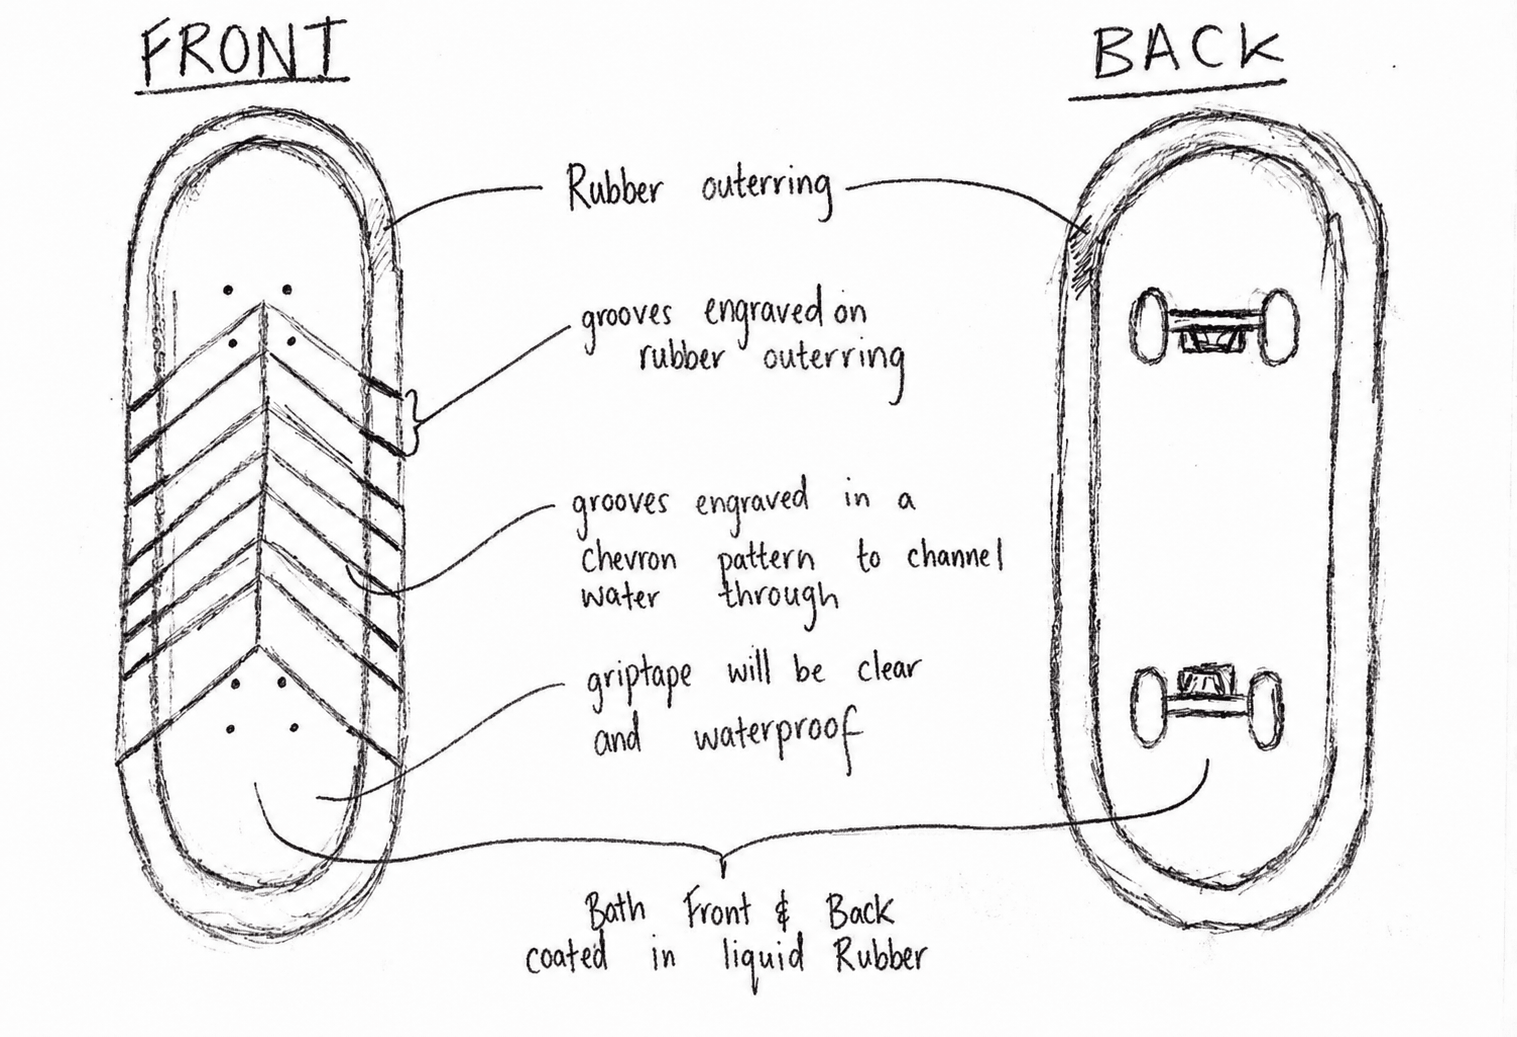 FRONT
BACK
Rubber outerring
grooves engraved on
rubber outerring
grooves engraved in a
chevron pattern to channel
water through
griptape will be clear
and waterproof
Bath Front & Back
coated in liquid Rubber